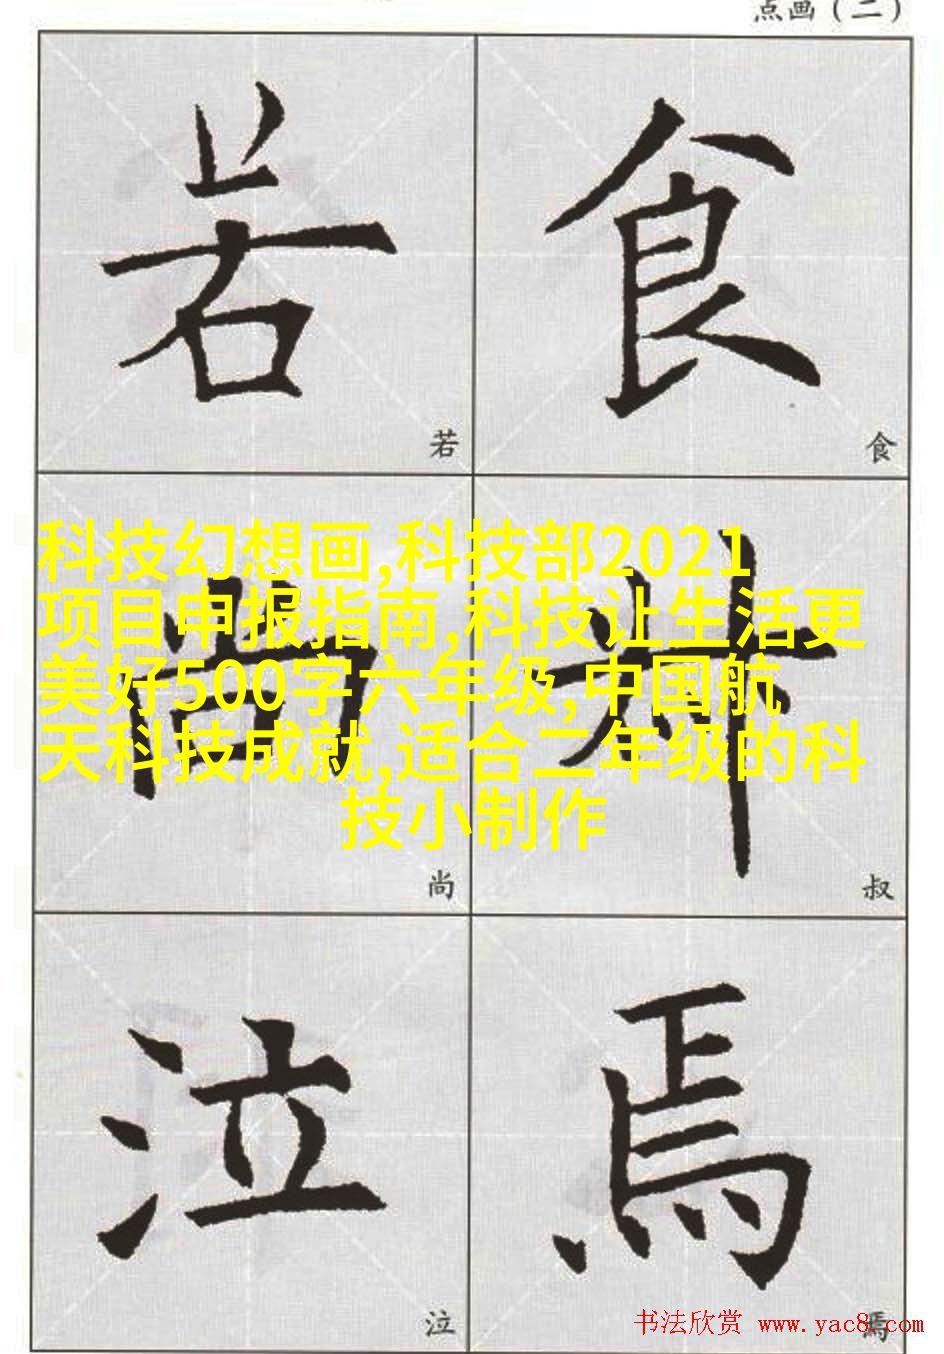 点画（二）
若 食
若 食
科技幻想画,科技部2021
项目申报指南,科技让生活更
美好500字六年级,中国航
天科技成就,适合二年级的科
技小制作
尚 叔
尚 叔
泣 焉
泣 焉
书法欣赏 www.yac8.com